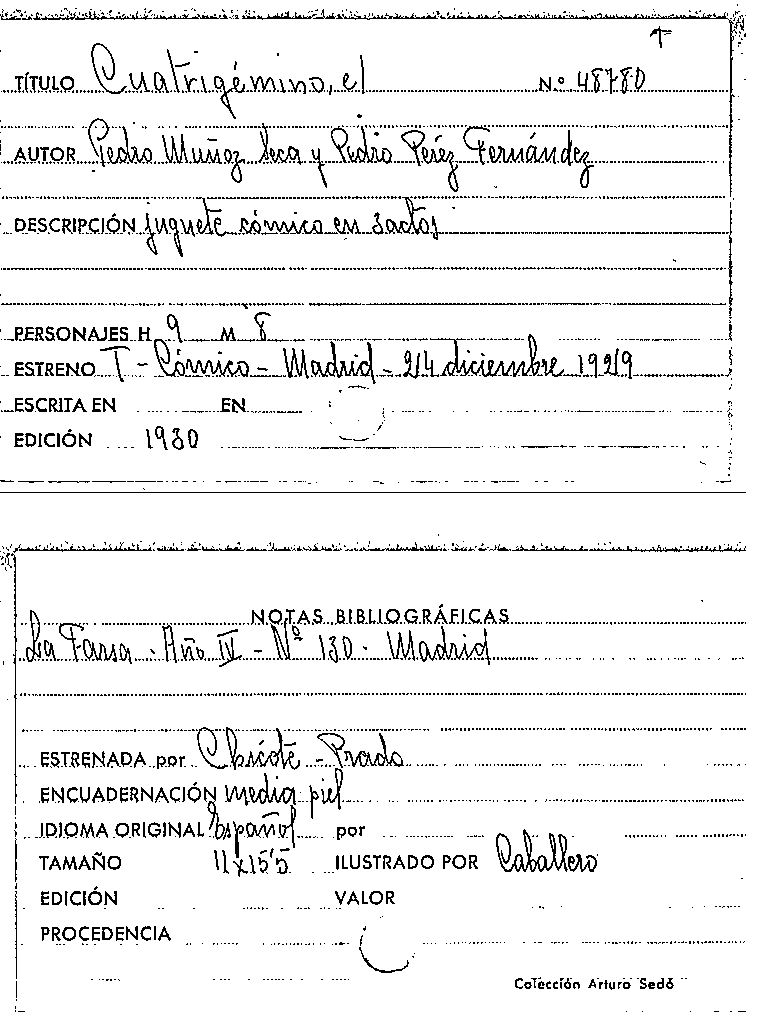 T
TÍTULO Cuatrigémino, el N.º 48780
AUTOR Pedro Muñoz Seca y Pedro Pérez Fernández
DESCRIPCIÓN juguete cómico en 3 actos
PERSONAJES H 9 M 8
ESTRENO T - Cómico - Madrid - 24 diciembre 1929
ESCRITA EN EN
EDICIÓN 1930
NOTAS BIBLIOGRÁFICAS
La Farsa - Año IV - Nº 130 - Madrid
ESTRENADA por Chicote - Prado
ENCUADERNACIÓN media piel
IDIOMA ORIGINAL Español por
TAMAÑO 11x15'5 ILUSTRADO POR Caballero
EDICIÓN VALOR
PROCEDENCIA
Colección Arturo Sedó